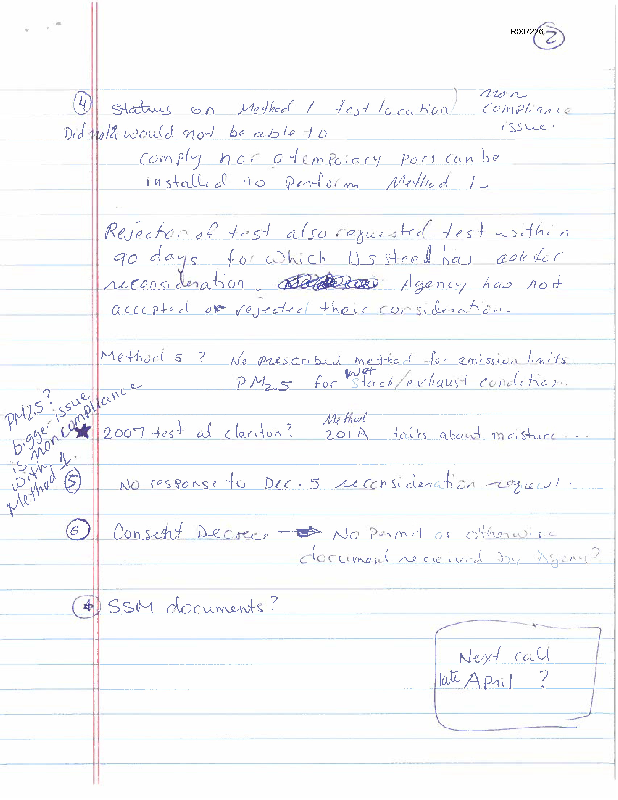 R007226
2
4 Status on Method 1 test location) non
compliance
issue.
Did not would not be able to
comply nor a temporary port can be
installed to perform Method 1.
Rejection of test also requested test within
90 days for which US Steel has ask for
reconsideration. Agency has not
accepted or rejected their consideration.
Method 5? No prescribed method for emission limits
PM2.5 for wet stack/exhaust condition.
PM2.5?
bigger issue
is noncompliance
with
Method 1.
★ 2007 test at clariton? Method 201A talks about moisture...
5 No response to Dec. 5 reconsideration request.
6 Consent Decree → No Permit or otherwise
document received by Agency?
SSM documents?
Next call
late April ?